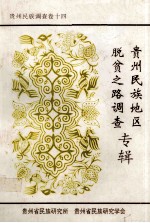 贵州民族调查卷十四
贵州民族地区
脱贫之路调查
专辑
贵州省民族研究所 贵州省民族研究学会